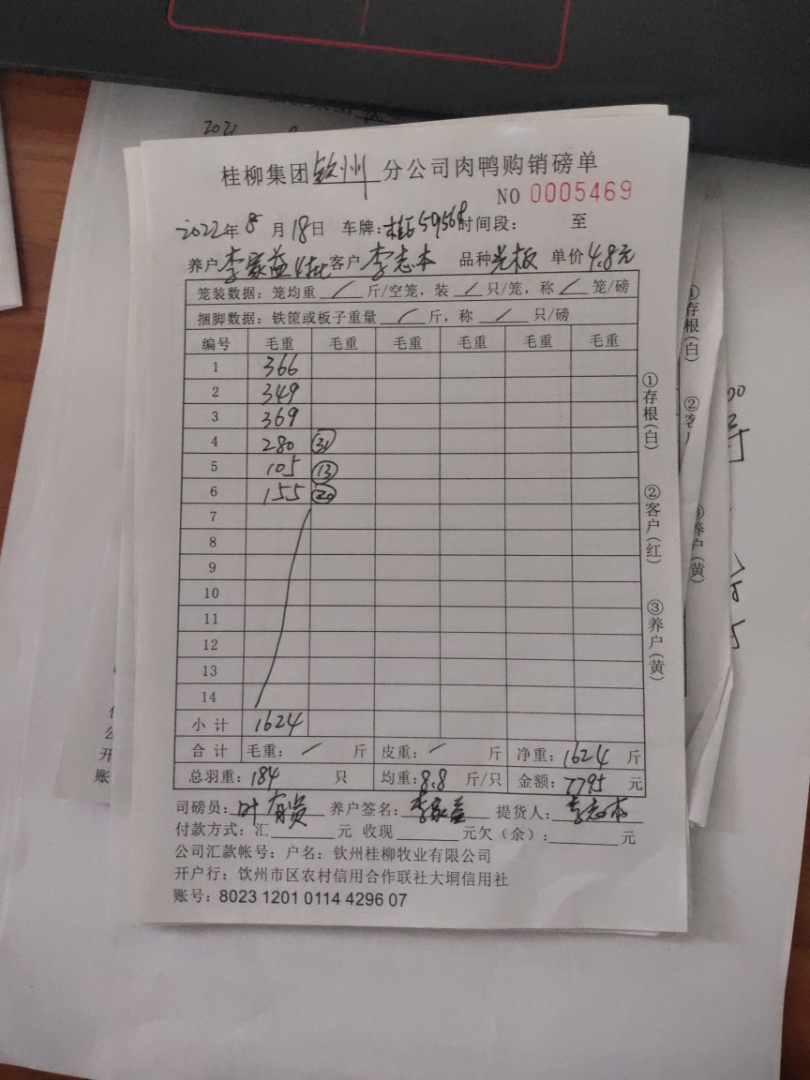 桂柳集团钦州分公司肉鸭购销磅单
NO 0005469
2022年8月18日 车牌:桂E59568时间段: 至
养户李家益4批客户李志本 品种光板 单价4.8元
笼装数据: 笼均重/斤/空笼,装/只/笼,称/笼/磅
捆脚数据: 铁筐或板子重量/斤,称/只/磅
编号 毛重 毛重 毛重 毛重 毛重 毛重
1 366
2 349
3 369
4 280 31
5 105 13
6 155 20
7
8
9
10
11
12
13
14
小计 1624
合计 毛重: / 斤 皮重: / 斤 净重: 1624 斤
总羽重: 184 只 均重: 8.8 斤/只 金额: 7795 元
司磅员: 叶有贵 养户签名: 李家益 提货人: 李志本
付款方式: 汇 元 收现 元欠(余): 元
公司汇款帐号: 户名: 钦州桂柳牧业有限公司
开户行: 钦州市区农村信用合作联社大垌信用社
账号: 8023 1201 0114 4296 07
①存根(白)
②客户(红)
③养户(黄)
①存根(白)
②客
③养户(黄)
2021
开
账